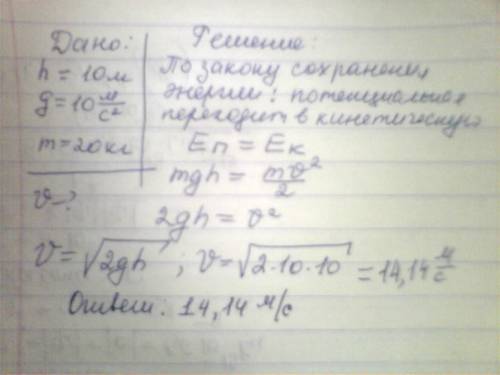 Дано:
h = 10м
g = 10 м/с²
m = 20кг
v - ?
Решение:
По закону сохранения
энергии: потенциальная
переходит в кинетическую
Eп = Eк
mgh = mv²/2
2gh = v²
v = √2gh ; v = √2·10·10 = 14,14 м/с
Ответ: 14,14 м/с